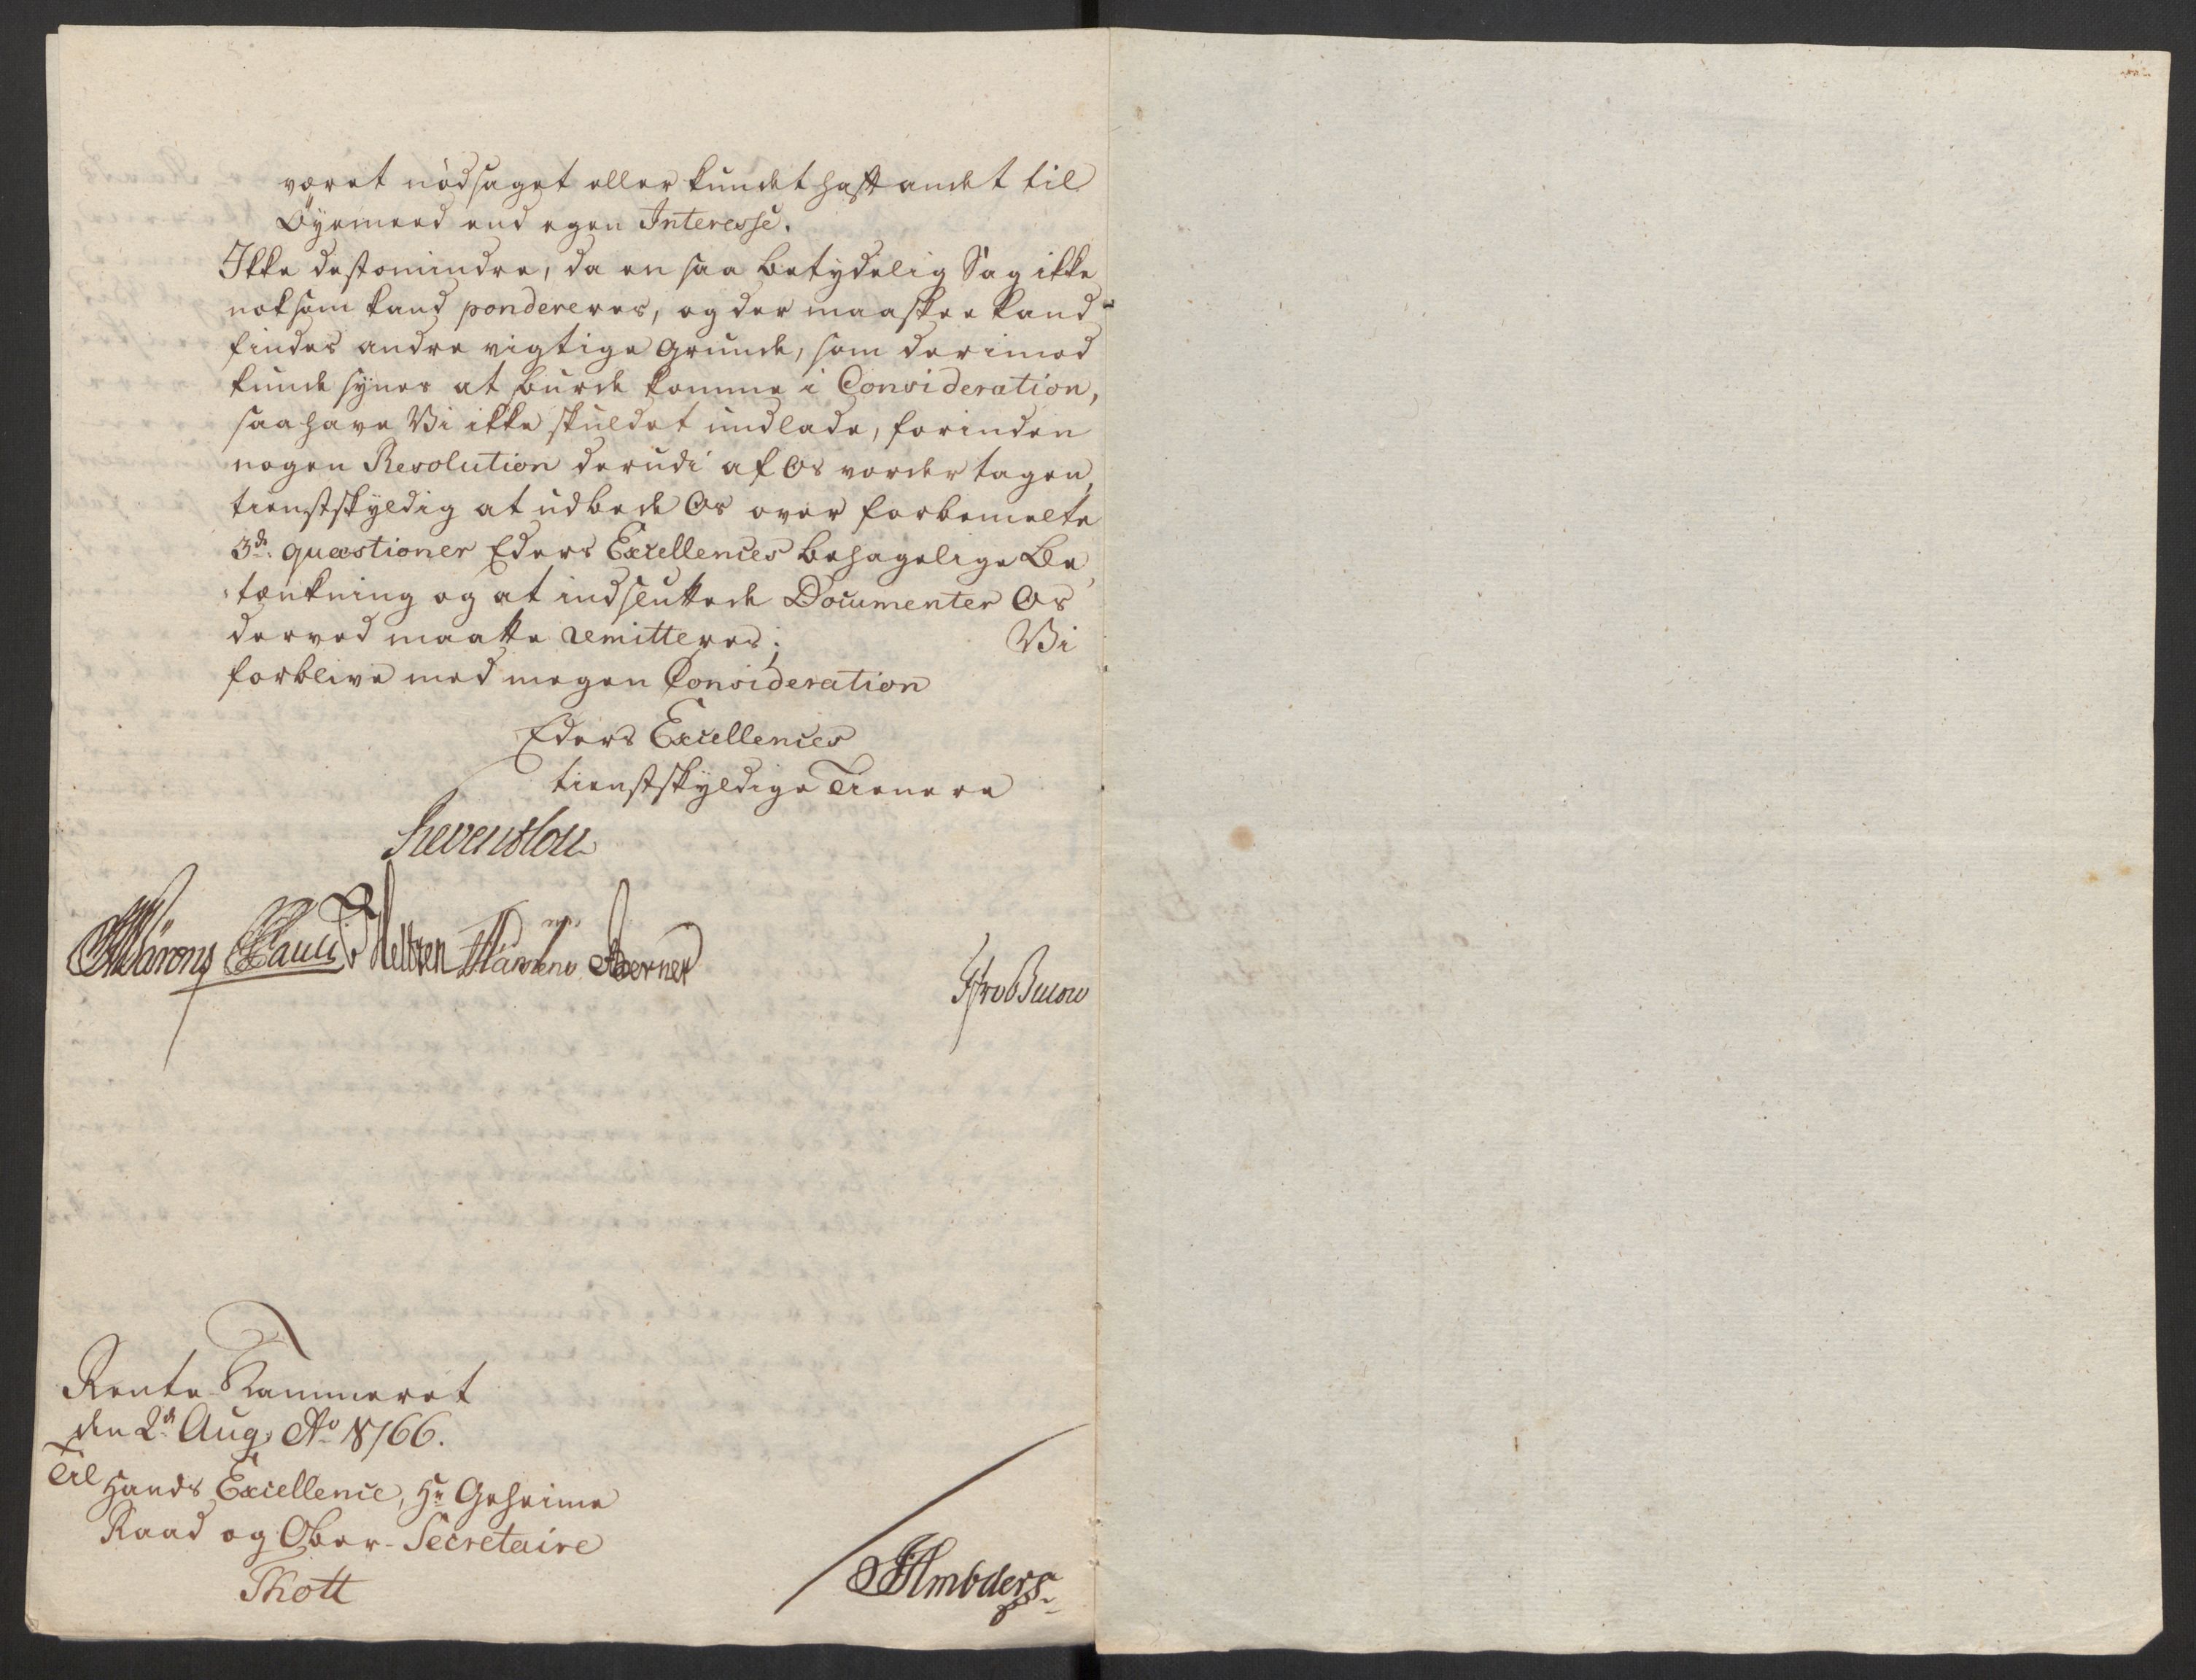 været nødsaget eller kundet hafft andet til
Øyemeed end egen Interesse.
Ikke destomindre, da en saa betydelig Sag ikke
noksom kand pondereres, og der maaskee kand
findes andre vigtige Grunde, som derimod
kunde synes at burde komme i Consideration,
saa have Vi ikke skuldet undlade, forinden
nogen Resolution derudi af Os vorder tagen,
tienstskyldig at udbede Os over forbemelte
3de. quæstioner Eders Excellences behagelige Be
tænkning og at indsluttede Documenter Os
derved maatte remitteres; Vi
forblive med megen Consideration
Eders Excellences
tienstskyldige Tienere
Revenslou
Rente Kammeret
den 2d. Aug. Ao 1766.
Til Hands Excellence, Hr Geheime
Raad og Ober-Secretaire
Thott